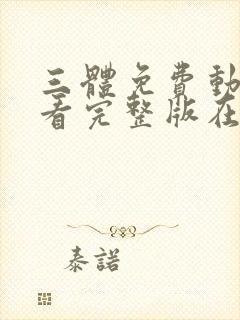 三體免費動
看完整版在
泰諾